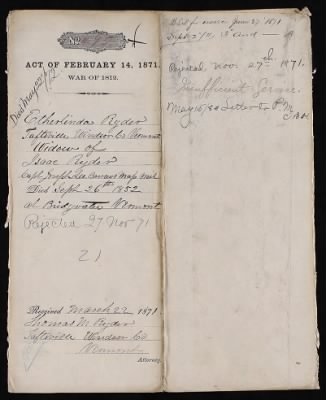 No
ACT OF FEBRUARY 14, 1871.
WAR OF 1812.
Died May 22/72
Etherlinda Ryder
Taftsville Windsor Co Vermont
Widow of
Isaac Ryder
Capt. Mass Mil
Died Sept. 26th 1852
at Bridgwater Vermont
Rejected 27 Nov 71
21
Received March 22, 1871
Thomas M Ryder
Taftsville Windsor Co
Vermont
Attorney.
for service June 27 1871
Rejected Nov. 27th, 1871.
Insufficient Service.
May 15/80 Letter to P.M.